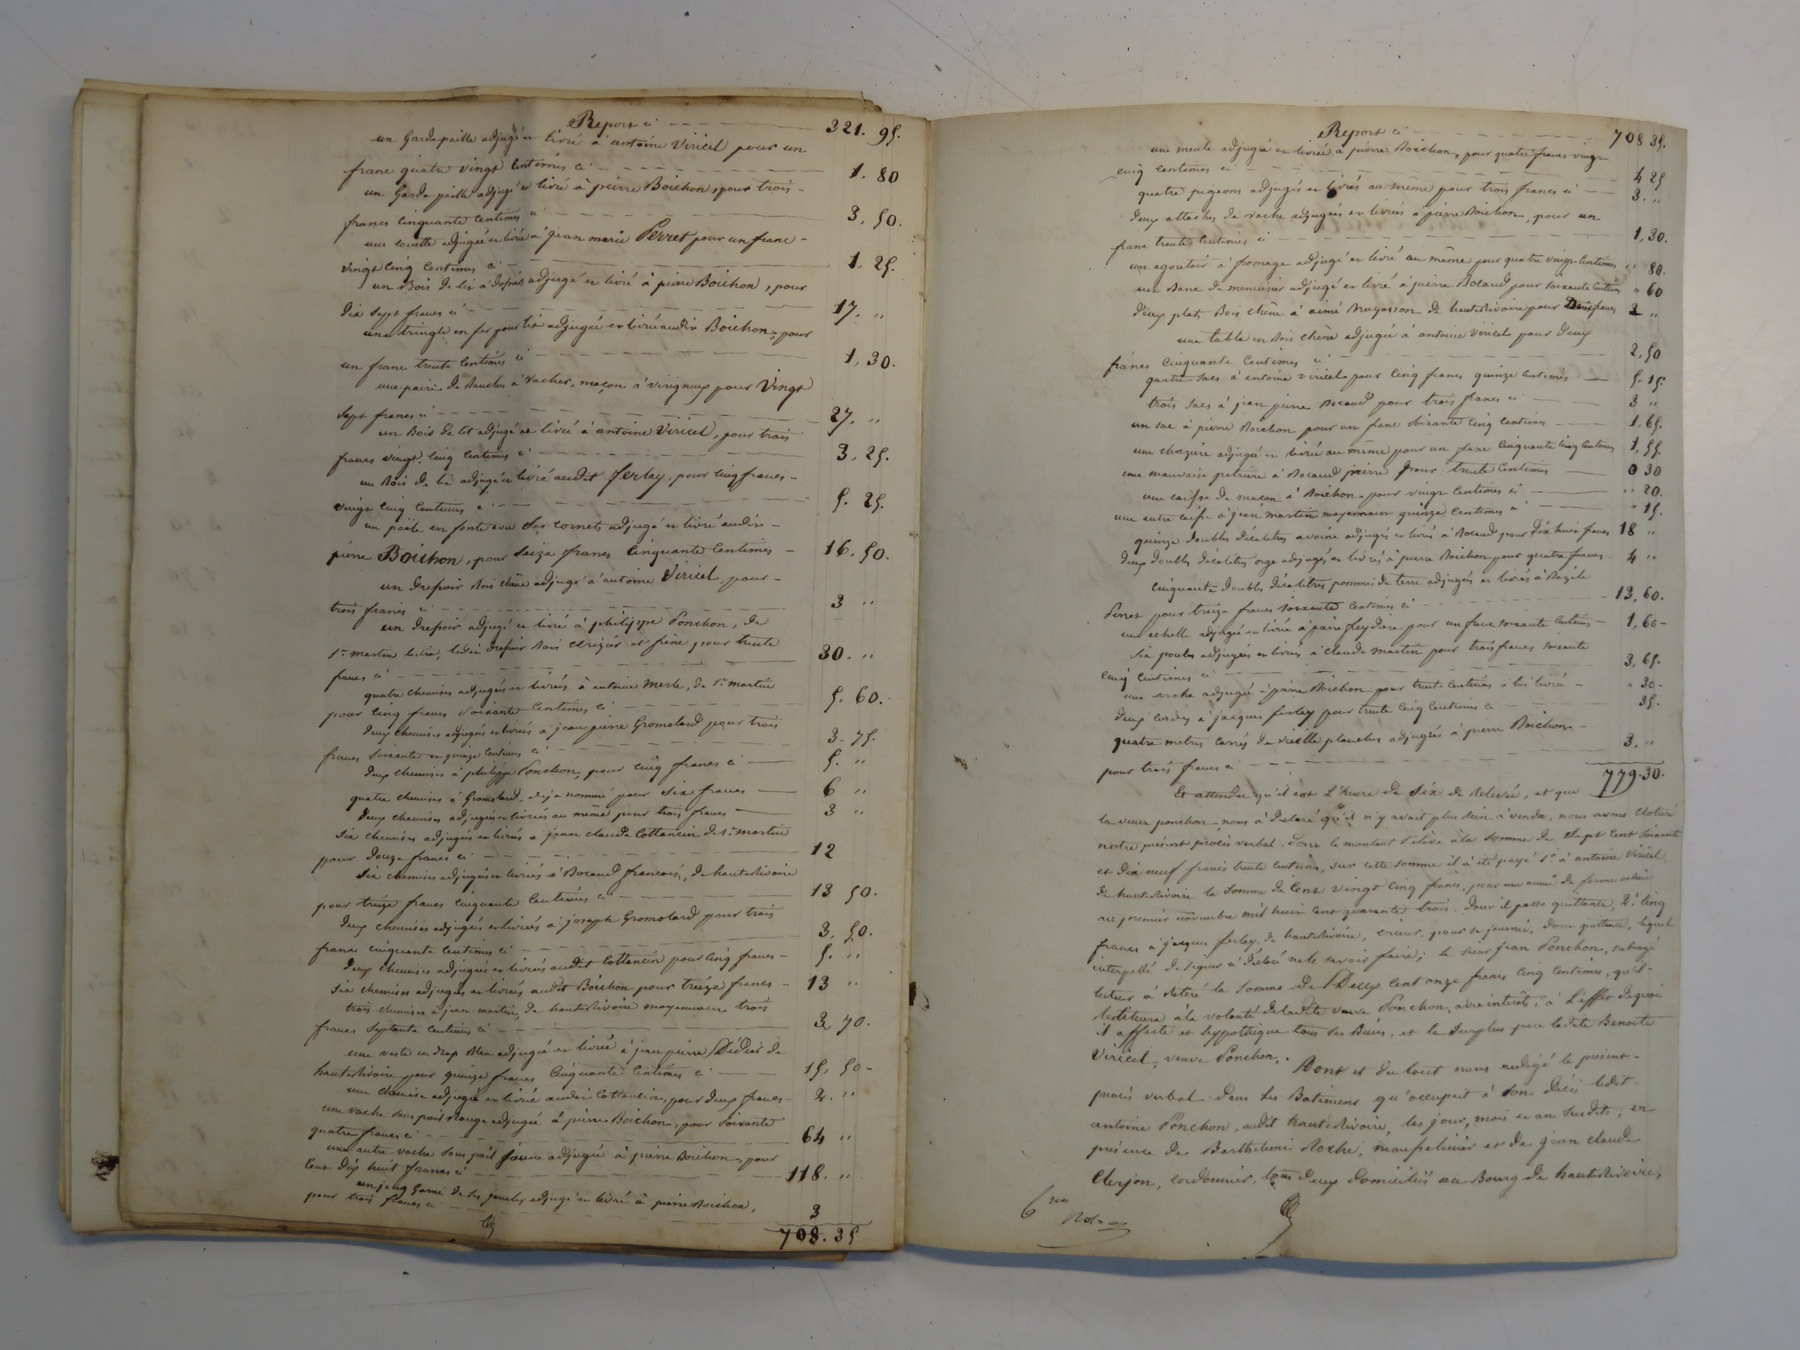 Report ci 321. 95.
un Garde paille adjugé et livré à antoine Viricel pour un
franc quatre vingt Centimes ci 1. 80
un Garde paille adjugé et livré à pierre Boichon, pour trois
francs Cinquante Centimes ci 3, 50.
une couette adjugée et livrée à jean marie Perret pour un franc
vingt Cinq Centimes ci 1. 25.
un Bois de lit adjugé et livré à pierre Boichon, pour
dix sept francs ci 17. "
une tringle en fer pour lit adjugée et livrée audit Boichon, pour
un franc trente Centimes ci 1, 30.
une paire de à Vacher, maçon à virigneux pour Vingt
sept francs ci 27. "
un Bois de lit adjugé et livré à antoine Viricel, pour trois
francs vingt Cinq Centimes ci 3, 25.
un Bois de lit adjugé et livré audit ferlay, pour Cinq francs
vingt Cinq Centimes ci 5. 25.
un poële en fonte avec Ses cornets adjugé et livré audit
pierre Boichon, pour Seize francs Cinquante Centimes 16. 50.
un dressoir bois chêne adjugé à antoine Viricel, pour
trois francs ci 3 "
un dressoir adjugé et livré à philippe Ponchon, de
St martin ledit dressoir bois cerizier et frêne pour trente
francs ci 30. "
quatre chemises adjugées et livrées à antoine Merle, de St martin
pour Cinq francs Soixante Centimes ci 5. 60.
deux chemises adjugées et livrées à jean pierre Gromolard pour trois
francs Soixante et quinze Centimes ci 3. 75.
deux chemises à philippe Ponchon, pour Cinq francs ci 5. "
quatre chemises à Gromolard, déja nommé pour Six francs 6 "
deux chemises adjugées et livrées au même pour trois francs 3 "
Six chemises adjugées et livrées à jean claude Cottancin de St martin
pour douze francs ci 12
Six chemises adjugées et livrées à Bocaud francois, de hauterivoire
pour treize francs Cinquante Centimes ci 13 50.
deux chemises adjugées et livrées à joseph Gromolard pour trois
francs cinquante Centimes ci 3, 50.
deux chemises adjugées et livrées audit Cottancin pour Cinq francs 5. "
Six chemises adjugées et livrées audit Boichon pour treize francs 13 "
trois chemises à jean martin, de hauterivoire moyennant trois
francs Septante Centimes ci 3, 70.
une veste en drap bleu adjugée et livrée à jean pierre de
hauterivoire pour quinze francs Cinquante Centimes ci 15, 50
une chemise adjugée et livrée audit Cottancin, pour deux francs 2. "
une vache Sous poil Rouge adjugée à pierre Boichon, pour Soixante
quatre francs ci 64 "
une autre vache Sous poil fauve adjugée à pierre Boichon, pour
Cent dix huit francs ci 118. "
un joug Garni de Ses adjugé et livré à pierre Boichon,
pour trois francs ci 3
708. 35
Report ci 708 35.
une meule adjugée et livrée à pierre Boichon, pour quatre francs vingt
cinq centimes ci 4 25
quatre pigeons adjugés et livrés au même pour trois francs ci 3. "
deux attaches de vache adjugées et livrées à pierre Boichon, pour un
franc trente Centimes ci 1, 30.
un egoutoir à fromage adjugé et livré au même pour quatre vingt Centimes " 80.
un Banc de menuisier adjugé et livré à pierre Bocaud pour soixante Centimes " 60
deux plats Bois chêne à aimé de hauterivoire pour Deux francs 2 "
une table en bois chêne adjugée à antoine Viricel pour deux
francs Cinquante Centimes ci 2, 50
quatre sacs à antoine Viricel pour Cinq francs quinze Centimes 5. 15.
trois sacs à jean pierre Bocaud pour trois francs ci 3 "
un sac à pierre Boichon pour un franc Soixante Cinq Centimes 1, 65.
une adjugée et livrée au même pour un franc Cinquante Cinq Centimes 1, 55.
une mauvaise à Bocaud pierre pour trente Centimes 0 30
une caisse de maçon à Boichon pour vingt Centimes ci " 20.
une autre caisse à jean martin moyennant quinze Centimes ci " 15.
quinze doubles décalitres avoine adjugés et livrés à Bocaud pour dix huit francs 18 "
deux doubles décalitres orge adjugés et livrés à pierre Boichon pour quatre francs 4 "
Cinquante doubles décalitres pommes de terre adjugés et livrés à Bazile
Perret pour treize francs soixante Centimes ci 13, 60.
une echelle adjugée et livrée à pour un franc soixante Centimes 1, 60
Six poules adjugées et livrées à Claude Martin pour trois francs soixante
Cinq Centimes ci 3, 65.
une arche adjugée à pierre Boichon pour trente Centimes à lui livrée " 30
deux cordes à jacques ferlay pour trente Cinq Centimes ci 35.
quatre metres carrés de vieille planches adjugés à pierre Boichon
pour trois francs ci 3, "
779. 30.
Et attendu qu'il est l'heure de Six de relevée, et que
la veuve ponchon nous a declaré qu'il n'y avait plus rien à vendre, nous avons cloturé
notre présent procès verbal. Dont le montant S'élève à la Somme de Sept Cent Soixante
et dix neuf francs trente Centimes, sur cette somme il a été payé 1° à antoine Viricel,
de hauterivoire la Somme de Cent Vingt Cinq francs, pour une année de ferme échue
au premier novembre mil huit cent quarante trois. Dont il passe quittance, 2° Cinq
francs à jacques ferlay de hauterivoire, crieur, pour sa journée, dont quittance, lequel
interpellé de signer a déclaré ne le savoir faire; le sieur jean Ponchon, subrogé
tuteur a retiré la somme de Deux Cent onze francs Cinq Centimes, qu'il
restituera à la volonté de ladite veuve Ponchon, avec intérêts; à l'effet de quoi
il affecte et hypothèque tous Ses Biens, et le Surplus par ladite Benoite
Viricel, veuve Ponchon.
Dont et du tout nous redigé le présent
procès verbal Dans les Batimens qu'occupait à Son décès ledit
antoine Ponchon, audit hauterivoire, les jour, mois et an Susdits; en
présence de Barthelemi Roche, et de jean claude
Clerjon, cordonnier, tous deux domiciliés au Bourg de hauterivoire,